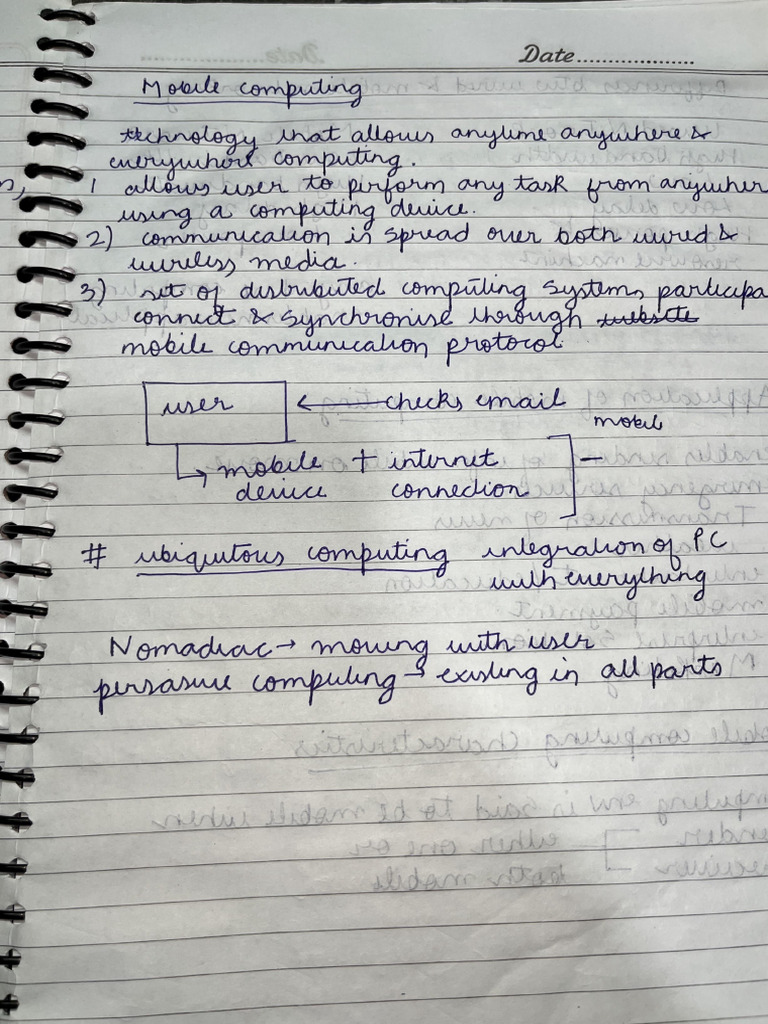 Date...................
Mobile computing
technology that allows anytime anywhere &
everywhere computing.
1 allows user to pirform any task from anywher
using a computing device.
2) communication is spread over both wired &
wireless media.
3) set of distributed computing systems participa
connect & synchronise through website
mobile communication protocol
user ← checks email
mobil
mobile + internet
device connection
# ubiquitous computing integration of PC
with everything
Nomadiac → moving with user
persasive computing → existing in all parts